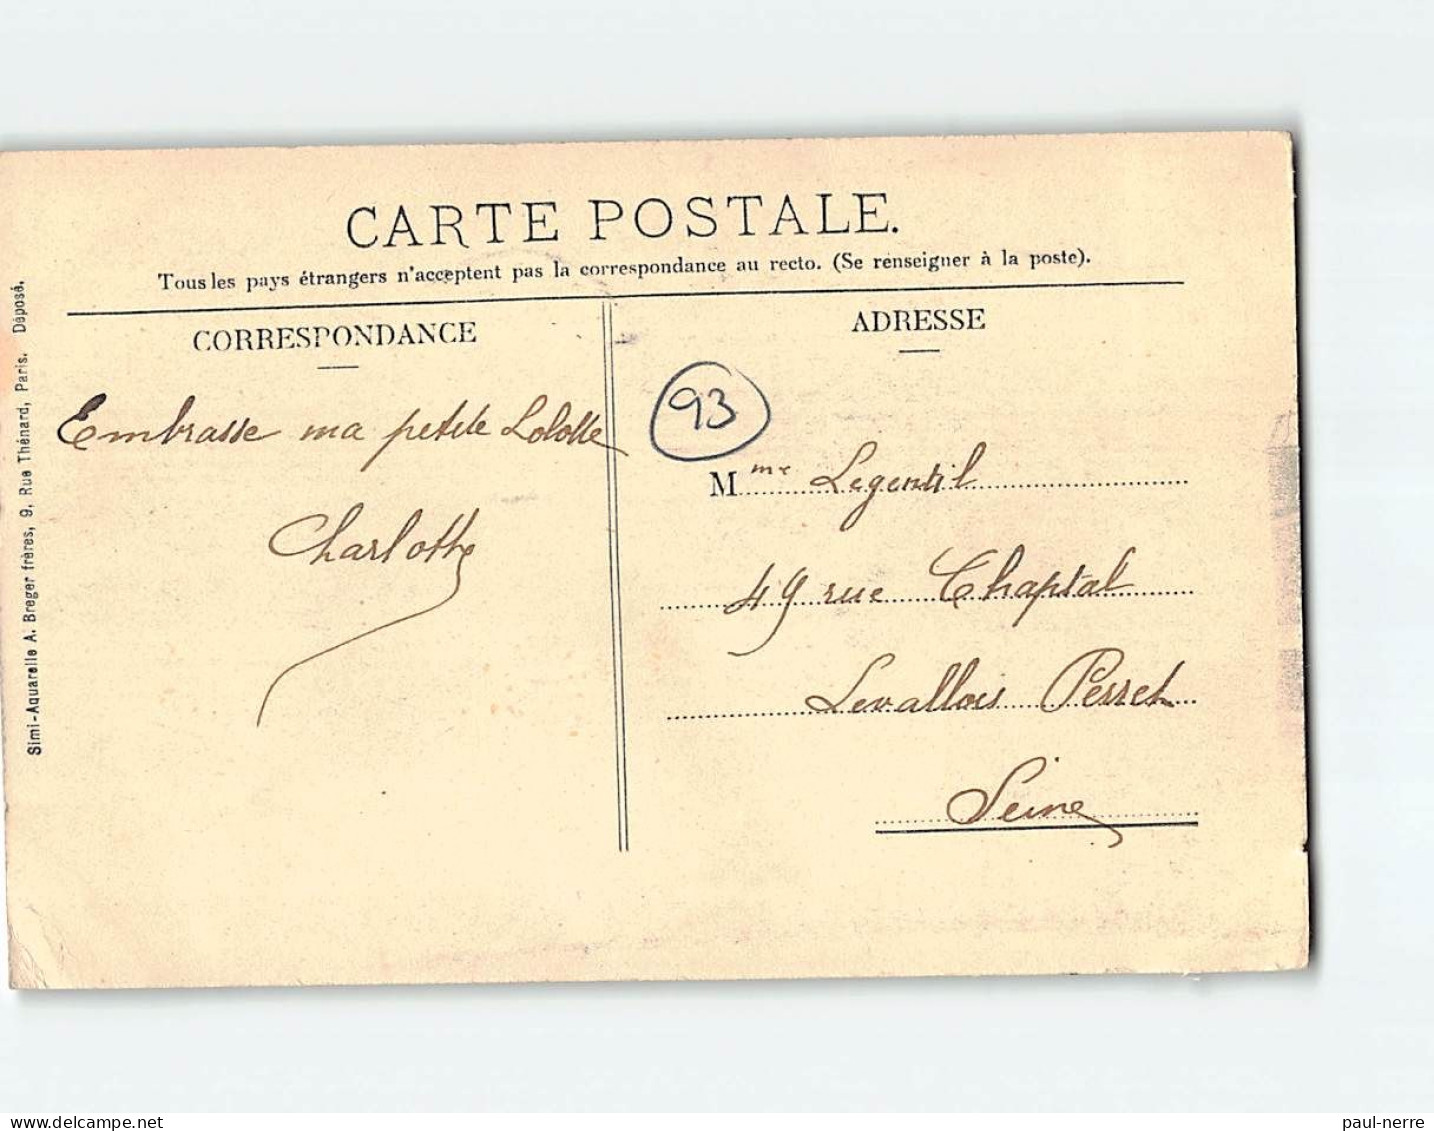 CARTE POSTALE.
Tous les pays étrangers n'acceptent pas la correspondance au recto. (Se renseigner à la poste).
CORRESPONDANCE
Embrasse ma petite Lolotte
Charlotte
ADRESSE
93
Mme Legentil
49 rue Chaptal
Levallois Perret
Seine
Simi-Aquarelle A. Breger frères, 9, Rue Thénard, Paris. Déposé.
paul-nerre